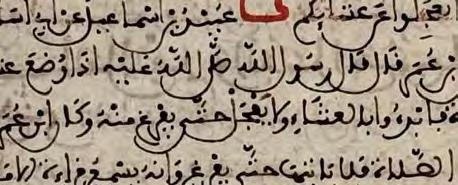 تعجلوا عن عشائكم عبيد بن اسماعيل عن ابي اسا
بن عمر قال قال رسول الله صلى الله عليه اذا وضع عشا
فابدءوا بالعشاء ولا يعجل حتى يفرغ منه وكان ابن عمر
الصلاة فلا ياتيها حتى يفرغ وانه يسمع قراءة الامام